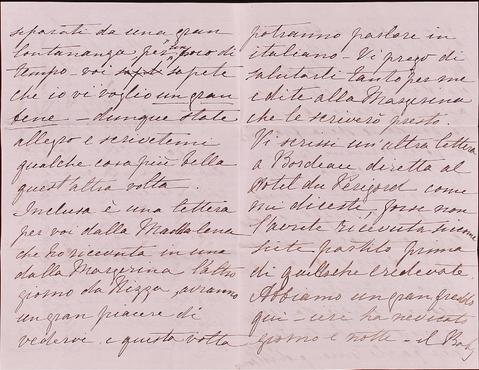 separati da una gran
lontananza per un poco di
tempo - voi sapete
che io vi voglio un gran
bene - dunque state
allegro e scrivetemi
qualche cosa più bella
quest'altra volta.
Inclusa è una lettera
per voi dalla Maddalena
che ho ricevuta in una
dalla Margerina l'altro
giorno da Nizza, avranno
un gran piacere di
vedervi e questa volta
potranno parlare in
italiano - Vi prego di
salutarli tanto per me
e dite alla Margerina
che le scriverò presto.
Vi scrissi un'altra lettera
a Bordeau diretta al
Hotel du Périgord come
mi diceste, forse non
l'avete ricevuta siccome
siete partito prima
di quel che credevate.
Abbiamo un gran freddo
qui - ieri ha nevicato
giorno e notte - il